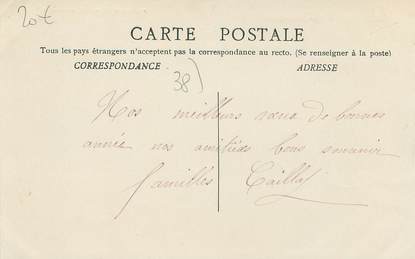 20€
CARTE POSTALE
Tous les pays étrangers n'acceptent pas la correspondance au recto. (Se renseigner à la poste)
CORRESPONDANCE
ADRESSE
38)
Nos meilleurs vœux de bonne
année nos amitiés bons souvenir
familles Caillat